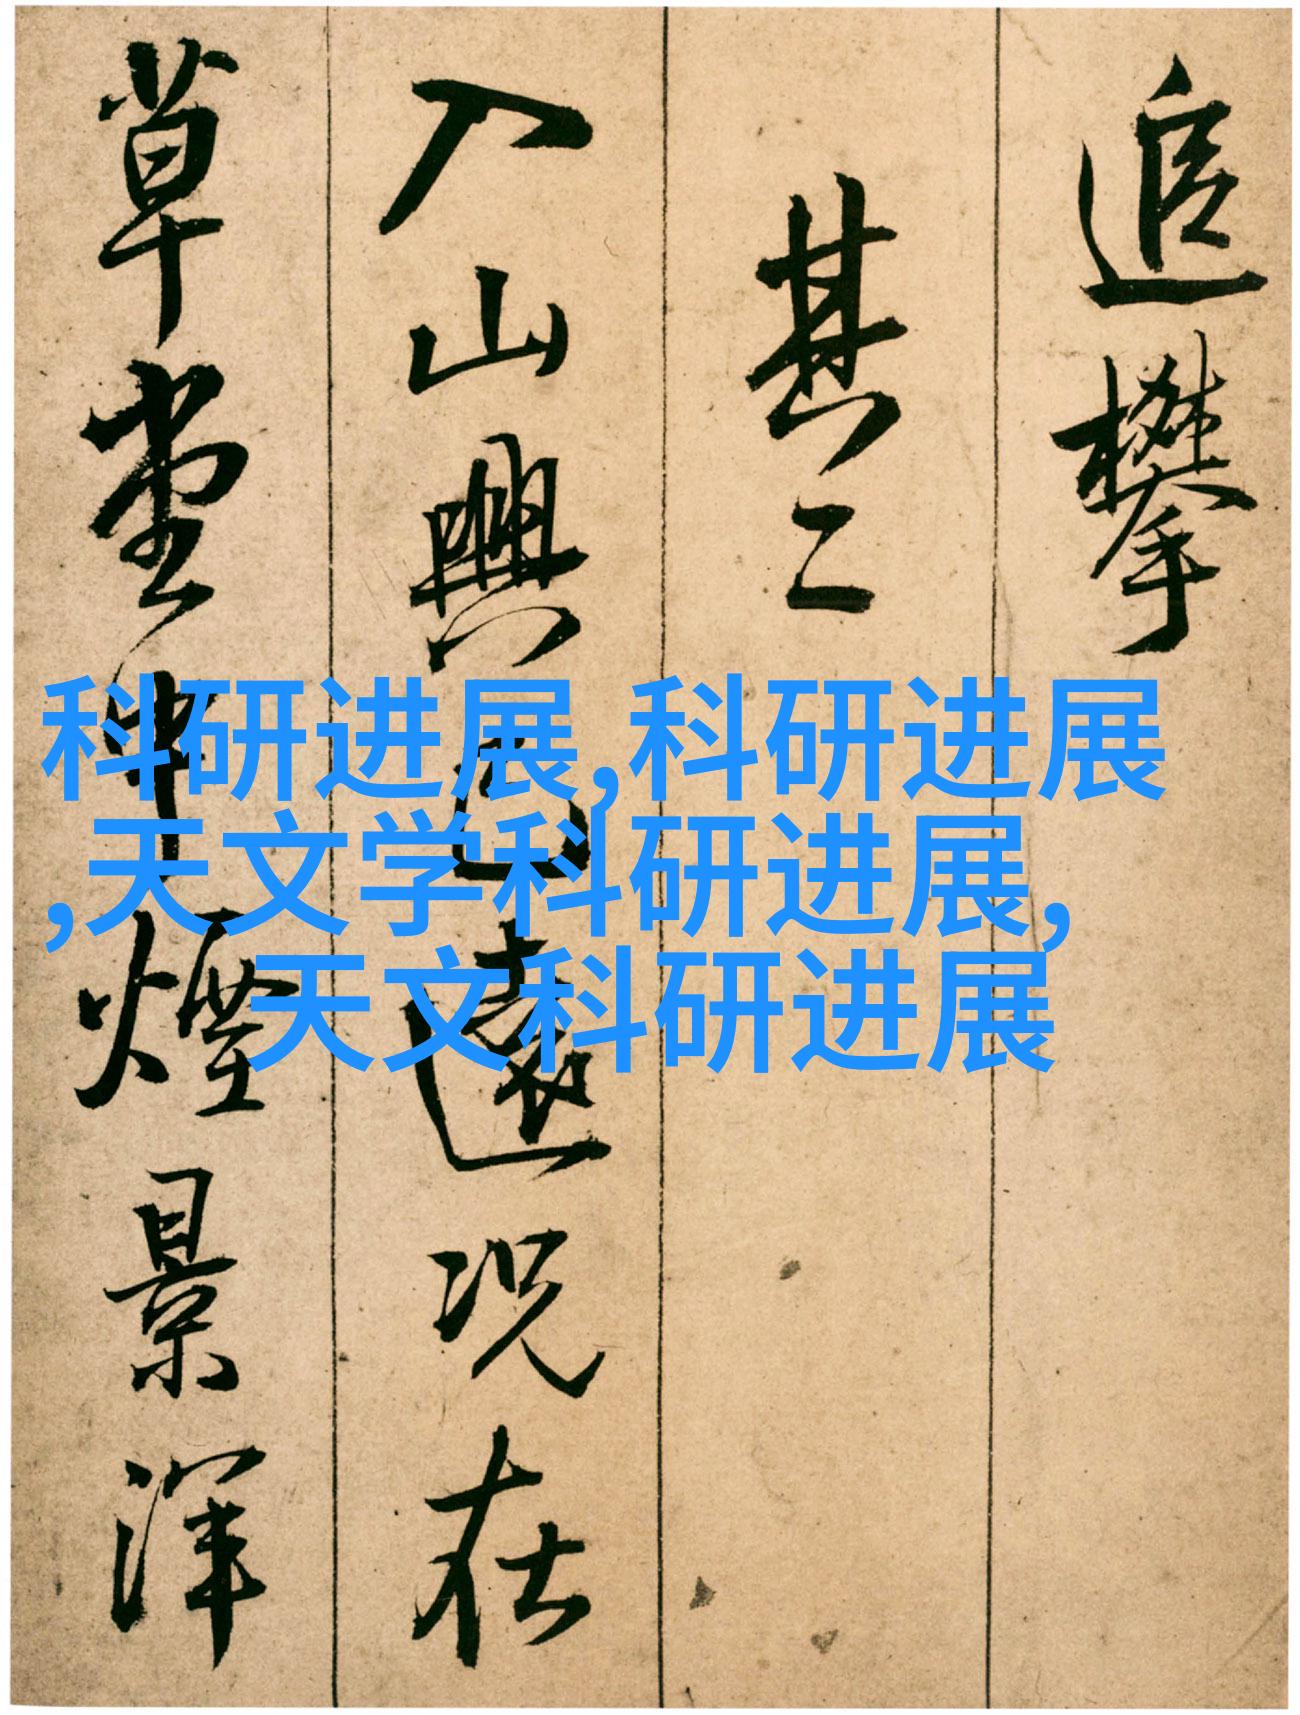 追攀
其二
入山興已遠況在
草堂中煙景渾
科研进展,科研进展
,天文学科研进展,
天文科研进展